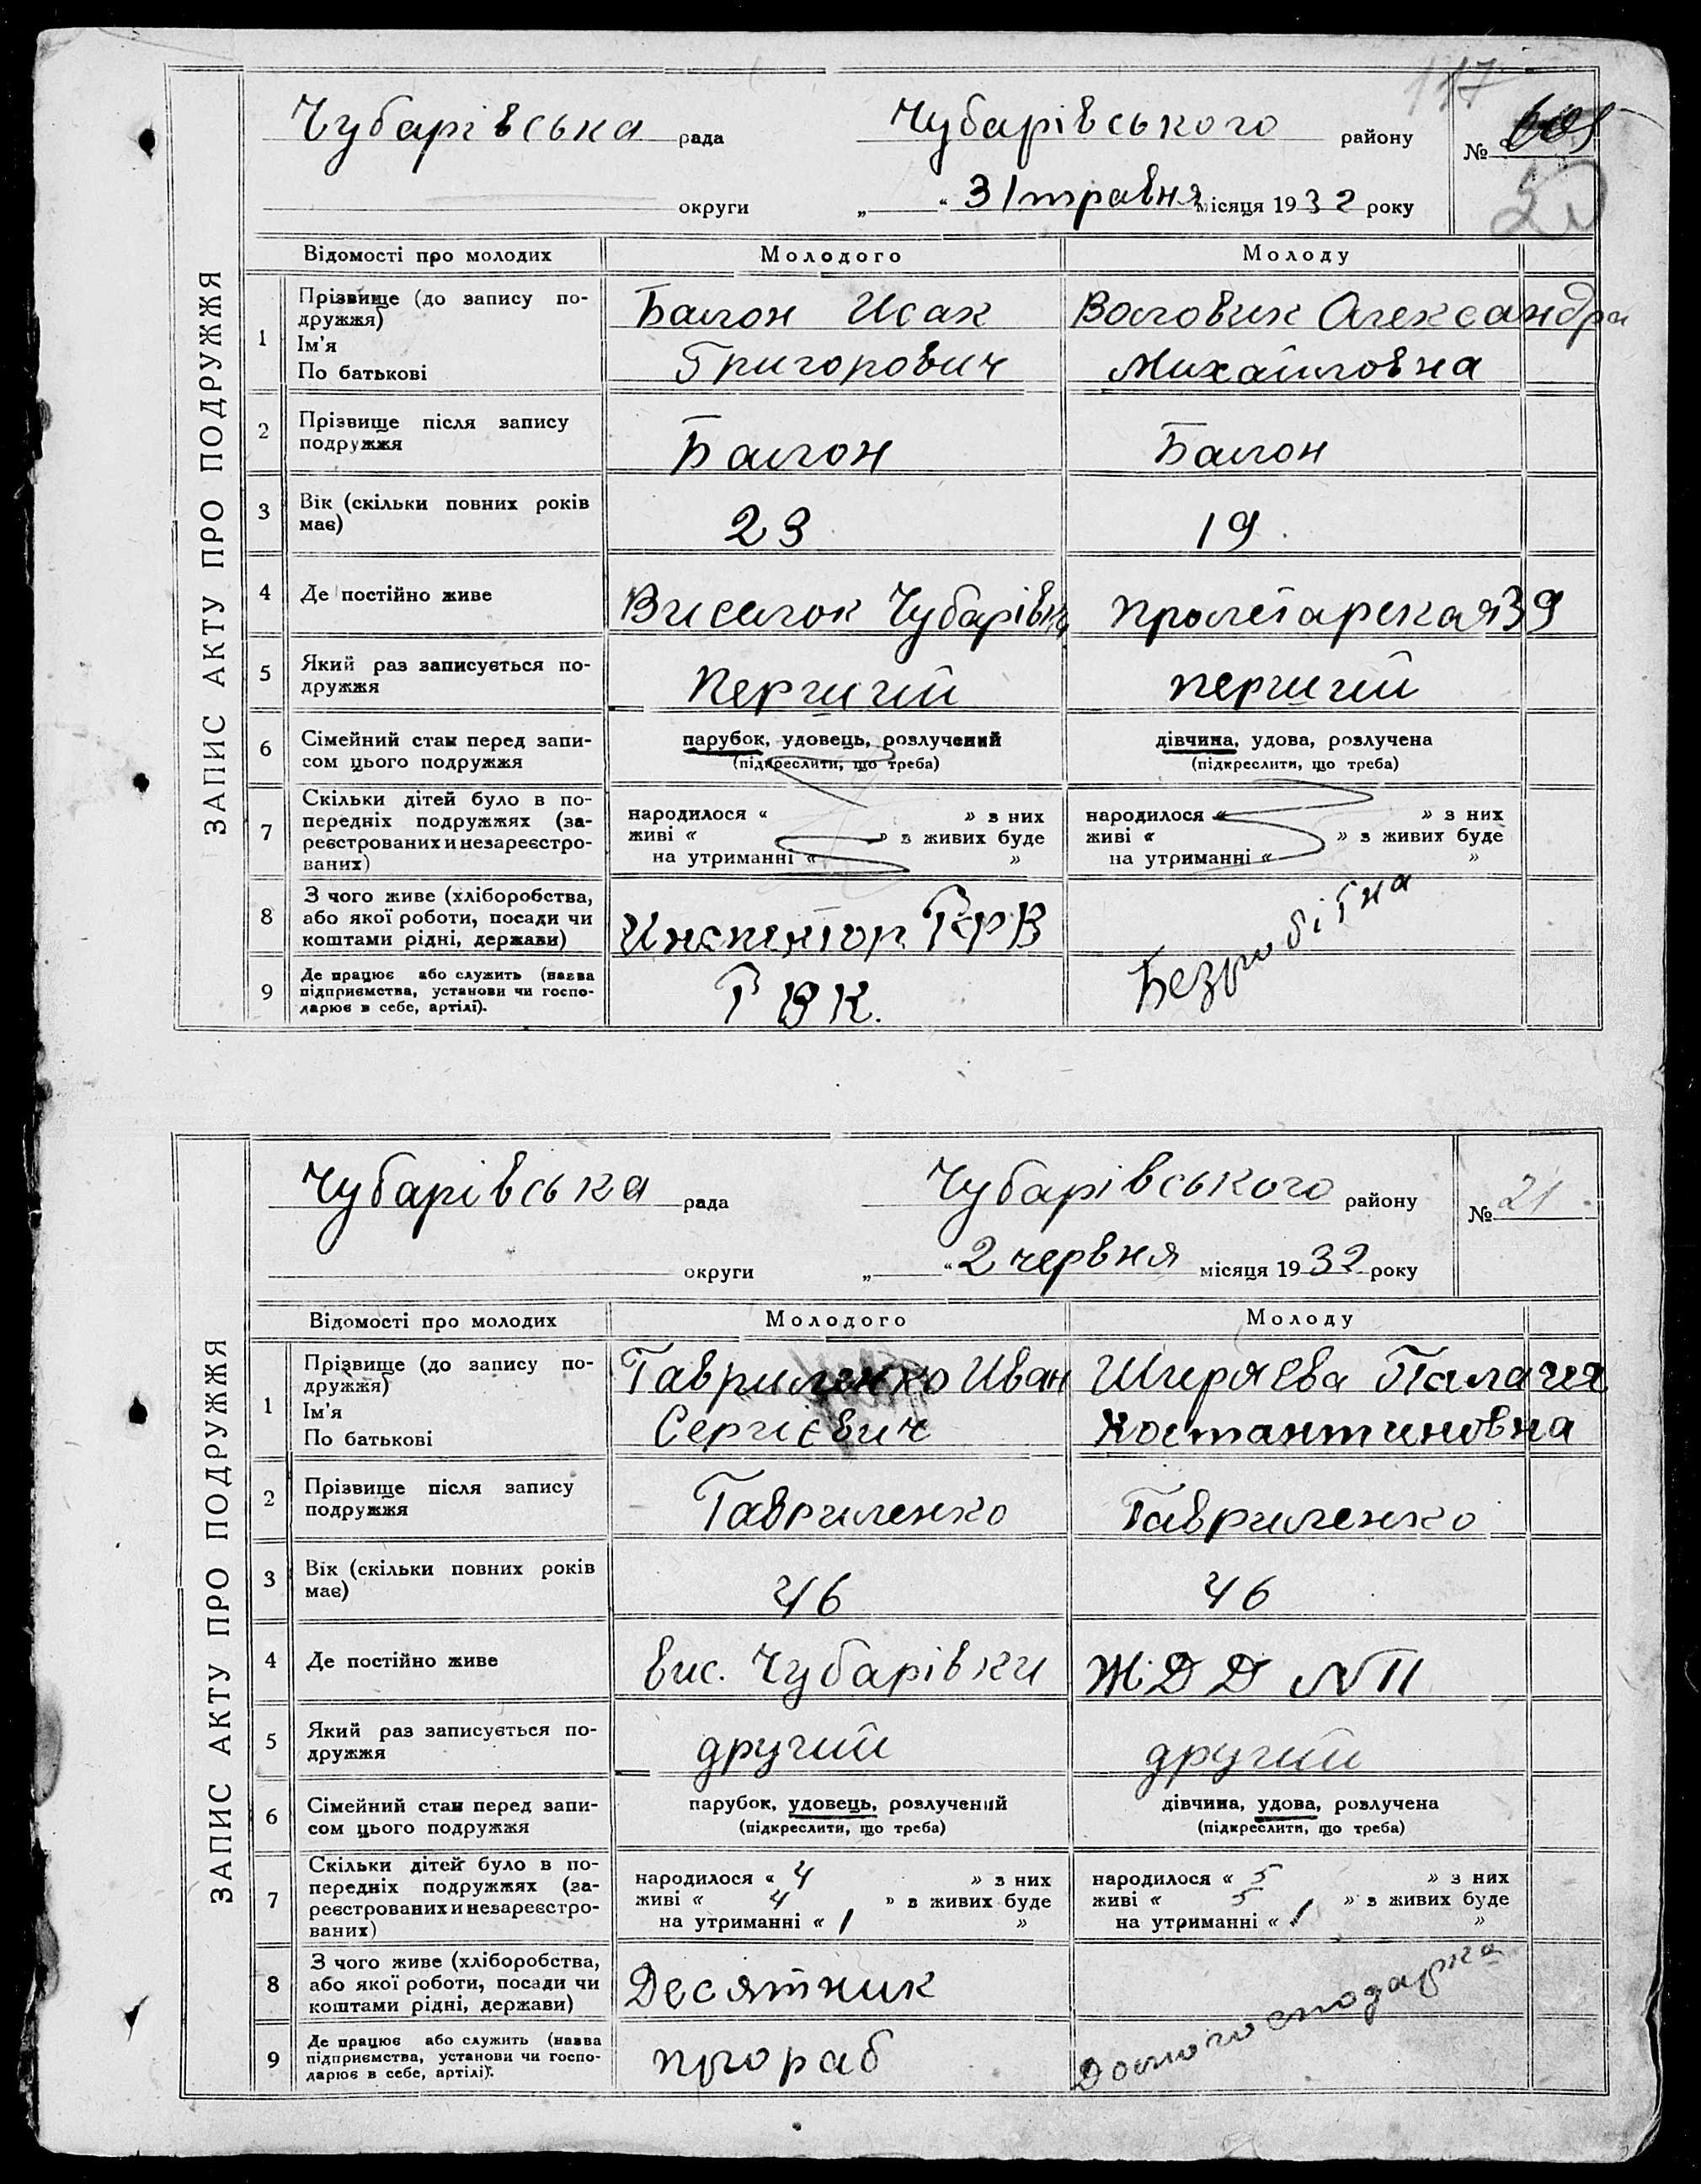 117
Чубарівська рада Чубарівського району №
округи „ “ 31 травня місяця 1932 року
20
ЗАПИС АКТУ ПРО ПОДРУЖЖЯ
Відомості про молодих Молодого Молоду
1 Прізвище (до запису по-
дружжя)
Ім'я
По батькові
Балон Исак
Григорович
Воловик Александра
Михайловна
2 Прізвище після запису
подружжя
Балон Балон
3 Вік (скільки повних років
має)
23 19.
4 Де постійно живе Виселок Чубарівка Пролетарская 39
5 Який раз записується по-
дружжя
Перший перший
6 Сімейний стан перед запи-
сом цього подружжя
парубок, удовець, розлучений
(підкреслити, що треба)
дівчина, удова, розлучена
(підкреслити, що треба)
7 Скільки дітей було в по-
передніх подружжях (за-
реєстрованих и незареєстро-
ваних)
народилося « » з них
живі « » з живих буде
на утриманні « »
народилося « » з них
живі « » з живих буде
на утриманні « »
8 З чого живе (хліборобства,
або якої роботи, посади чи
коштами рідні, держави)
Инспектор
Безробітна
9 Де працює або служить (назва
підприємства, установи чи госпо-
дарює в себе, артілі).
РВК.
Чубарівська рада Чубарівського району № 21.
округи „ “ 2 червня місяця 1932 року
ЗАПИС АКТУ ПРО ПОДРУЖЖЯ
Відомості про молодих Молодого Молоду
1 Прізвище (до запису по-
дружжя)
Ім'я
По батькові
Гавриленко Иван
Сергієвич
Ширяєва Палагея
Костантиновна
2 Прізвище після запису
подружжя
Гавриленко Гавриленко
3 Вік (скільки повних років
має)
46 46
4 Де постійно живе вис. Чубарівки ЖДД №11
5 Який раз записується по-
дружжя
другий другий
6 Сімейний стан перед запи-
сом цього подружжя
парубок, удовець, розлучений
(підкреслити, що треба)
дівчина, удова, розлучена
(підкреслити, що треба)
7 Скільки дітей було в по-
передніх подружжях (за-
реєстрованих и незареєстро-
ваних)
народилося « 4 » з них
живі « 4 » з живих буде
на утриманні « 1 »
народилося « 5 » з них
живі « 5 » з живих буде
на утриманні « 1 »
8 З чого живе (хліборобства,
або якої роботи, посади чи
коштами рідні, держави)
Десятник
Домогосподарка
9 Де працює або служить (назва
підприємства, установи чи госпо-
дарює в себе, артілі).
прораб